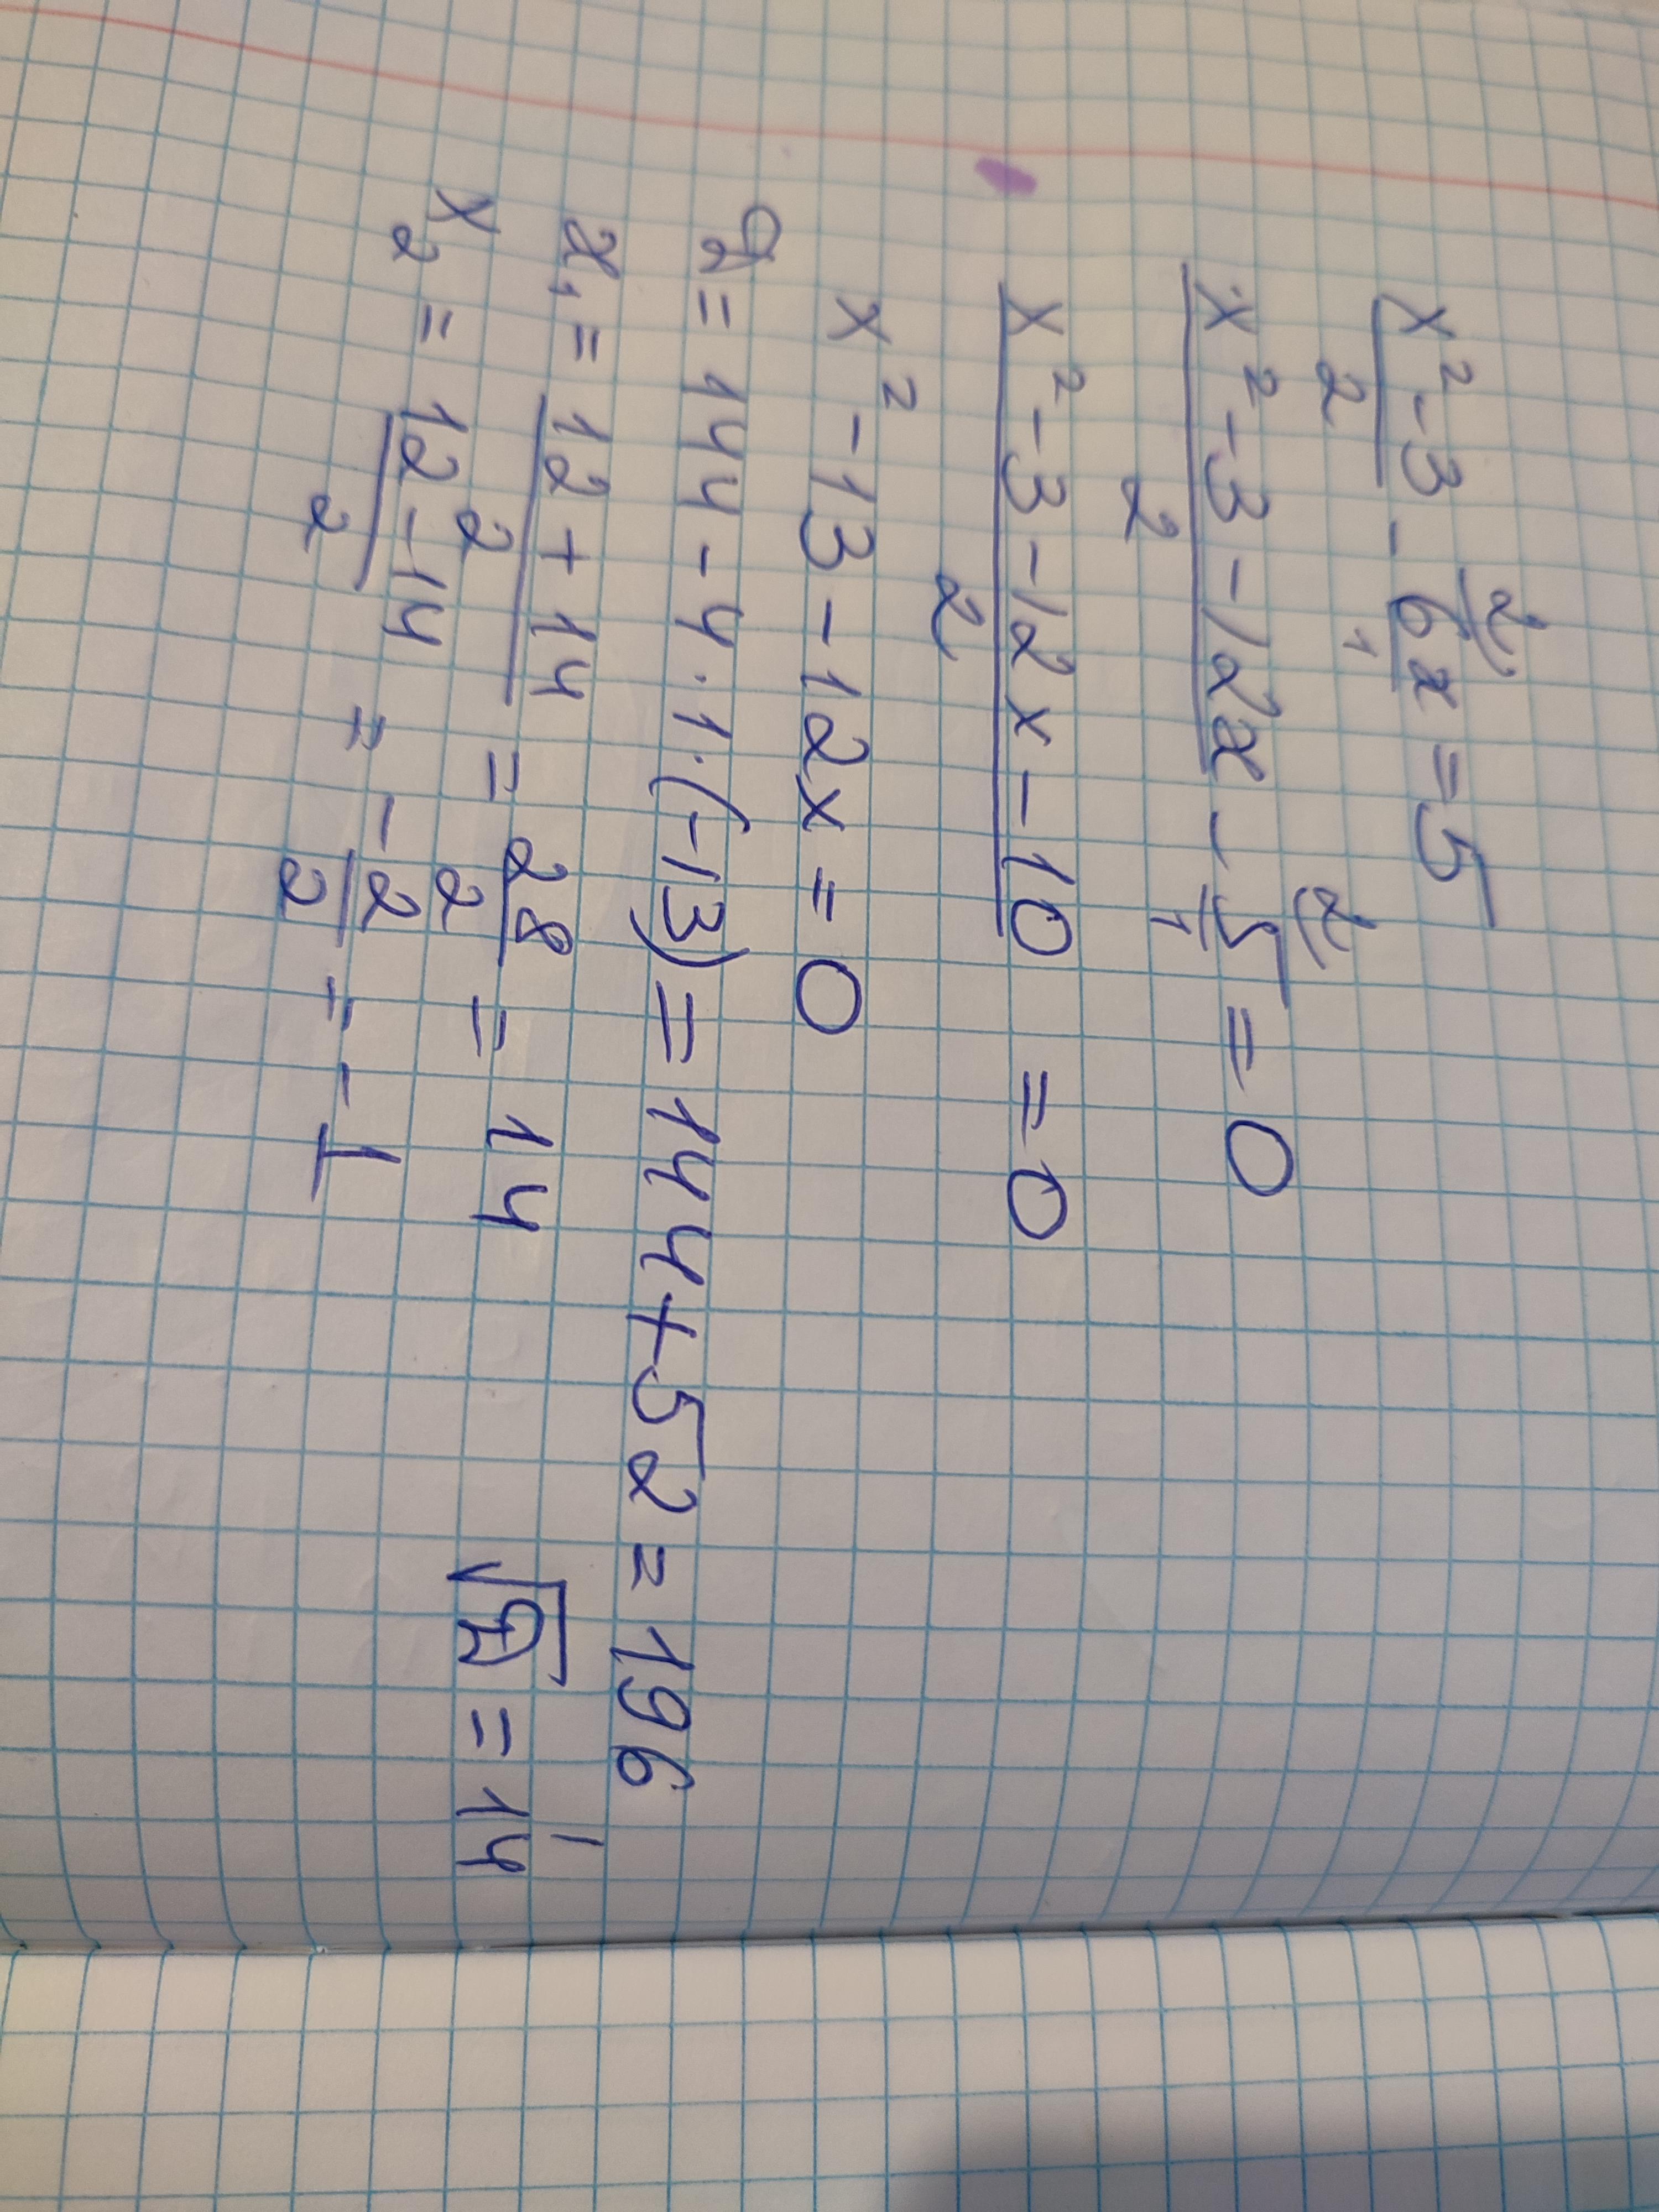 x² - 3 / 2 - 6x / 1 ⁽² = 5
x² - 3 - 12x / 2 - 5 / 1 ⁽² = 0
x² - 3 - 12x - 10 / 2 = 0
x² - 13 - 12x = 0
D = 144 - 4 · 1 · (-13) = 144 + 52 = 196
x₁ = 12 + 14 / 2 = 28 / 2 = 14 √D = 14
x₂ = 12 - 14 / 2 = -2 / 2 = -1